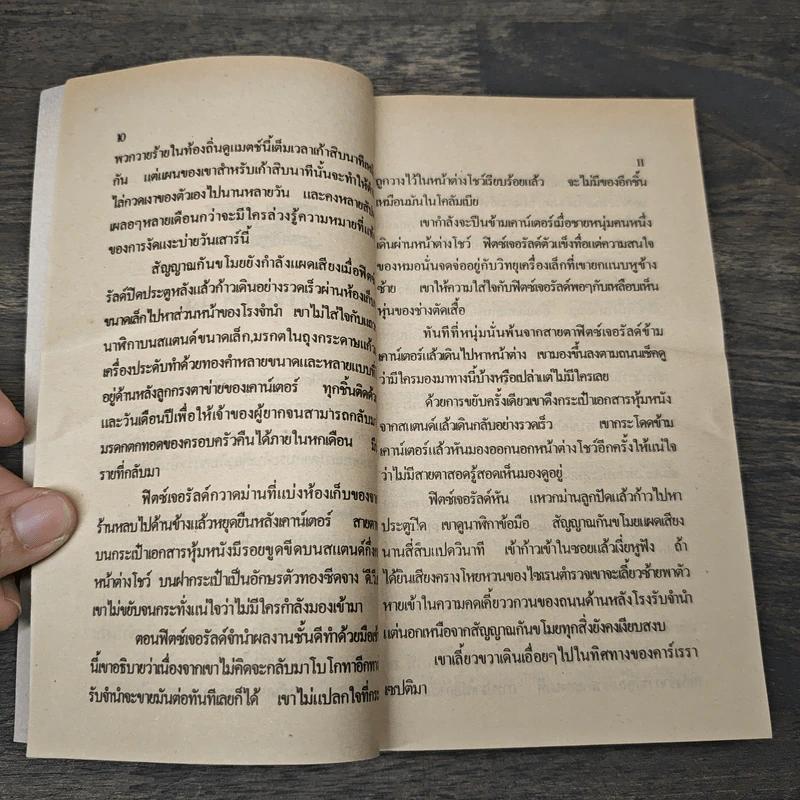 10
พวกวายร้ายในท้องถิ่นดูแมตช์นี้เต็มเวลาเก้าสิบนาที
กัน แต่แผนของเขาสำหรับเก้าสิบนาทีนั้นจะทำให้
ไล่กวดเงาของตัวเองไปนานหลายวัน และคงหลาย
เผลอๆหลายเดือนกว่าจะมีใครล่วงรู้ความหมายที่
ของการงัดแงะบ่ายวันเสาร์นี้
สัญญาณกันขโมยยังกำลังแผดเสียงเมื่อฟิตซ์
รัลด์ปิดประตูหลังแล้วก้าวเดินอย่างรวดเร็วผ่านห้องเก็บ
ขนาดเล็กไปหาส่วนหน้าของโรงจำนำ เขาไม่ใส่ใจกับ
นาฬิกาบนสแตนด์ขนาดเล็ก,มรกตในถุงกระดาษแก้ว
เครื่องประดับทำด้วยทองคำหลายขนาดและหลายแบบที่
อยู่ด้านหลังลูกกรงตาข่ายของเคาน์เตอร์ ทุกชิ้นติด
และวันเดือนปีเพื่อให้เจ้าของผู้ยากจนสามารถกลับมา
มรดกตกทอดของครอบครัวคืนได้ภายในหกเดือน
รายที่กลับมา
ฟิตซ์เจอรัลด์กวาดม่านที่แบ่งห้องเก็บของจาก
ร้านหลบไปด้านข้างแล้วหยุดยืนหลังเคาน์เตอร์ สายตา
บนกระเป๋าเอกสารหุ้มหนังมีรอยขูดขีดบนสแตนด์กึ่ง
หน้าต่างโชว์ บนฝากระเป๋าเป็นอักษรตัวทองซีดจาง ดี.วี
เขาไม่ขยับจนกระทั่งแน่ใจว่าไม่มีใครกำลังมองเข้ามา
ตอนฟิตซ์เจอรัลด์จำนำผลงานชั้นดีทำด้วยมือ
นี้เขาอธิบายว่าเนื่องจากเขาไม่คิดจะกลับมาโบโกทาอีก
รับจำนำจะขายมันต่อทันทีเลยก็ได้ เขาไม่แปลกใจที่
11
ถูกวางไว้ในหน้าต่างโชว์เรียบร้อยแล้ว จะไม่มีของอีกชิ้น
เหมือนมันในโคลัมเบีย
เขากำลังจะปีนข้ามเคาน์เตอร์เมื่อชายหนุ่มคนหนึ่ง
เดินผ่านหน้าต่างโชว์ ฟิตซ์เจอรัลด์ตัวแข็งทื่อแต่ความสนใจ
ของหมอนั่นจดจ่ออยู่กับวิทยุเครื่องเล็กที่เขายกแนบหูข้าง
ซ้าย เขาให้ความใส่ใจกับฟิตซ์เจอรัลด์พอๆกับเหลือบเห็น
หุ่นของช่างตัดเสื้อ
ทันทีที่หนุ่มนั่นพ้นจากสายตาฟิตซ์เจอรัลด์ข้าม
เคาน์เตอร์แล้วเดินไปหาหน้าต่าง เขามองขึ้นลงตามถนนเช็คดู
ว่ามีใครมองมาทางนี้บ้างหรือเปล่าแต่ไม่มีใครเลย
ด้วยการขยับครั้งเดียวเขาดึงกระเป๋าเอกสารหุ้มหนัง
จากสแตนด์แล้วเดินกลับอย่างรวดเร็ว เขากระโดดข้าม
เคาน์เตอร์แล้วหันมองออกนอกหน้าต่างโชว์อีกครั้งให้แน่ใจ
ว่าไม่มีสายตาสอดรู้สอดเห็นมองดูอยู่
ฟิตซ์เจอรัลด์หัน แหวกม่านลูกปัดแล้วก้าวไปหา
ประตูปิด เขาดูนาฬิกาข้อมือ สัญญาณกันขโมยแผดเสียง
นานสี่สิบแปดวินาที เข้าก้าวเข้าในซอยแล้วเงี่ยหูฟัง ถ้า
ได้ยินเสียงครางโหยหวนของไซเรนตำรวจเขาจะเลี้ยวซ้ายพาตัว
หายเข้าในความคดเคี้ยววกวนของถนนด้านหลังโรงรับจำนำ
แต่นอกเหนือจากสัญญาณกันขโมยทุกสิ่งยังคงเงียบสงบ
เขาเลี้ยวขวาเดินเอื่อยๆไปในทิศทางของคาร์เรรา
เซปติมา